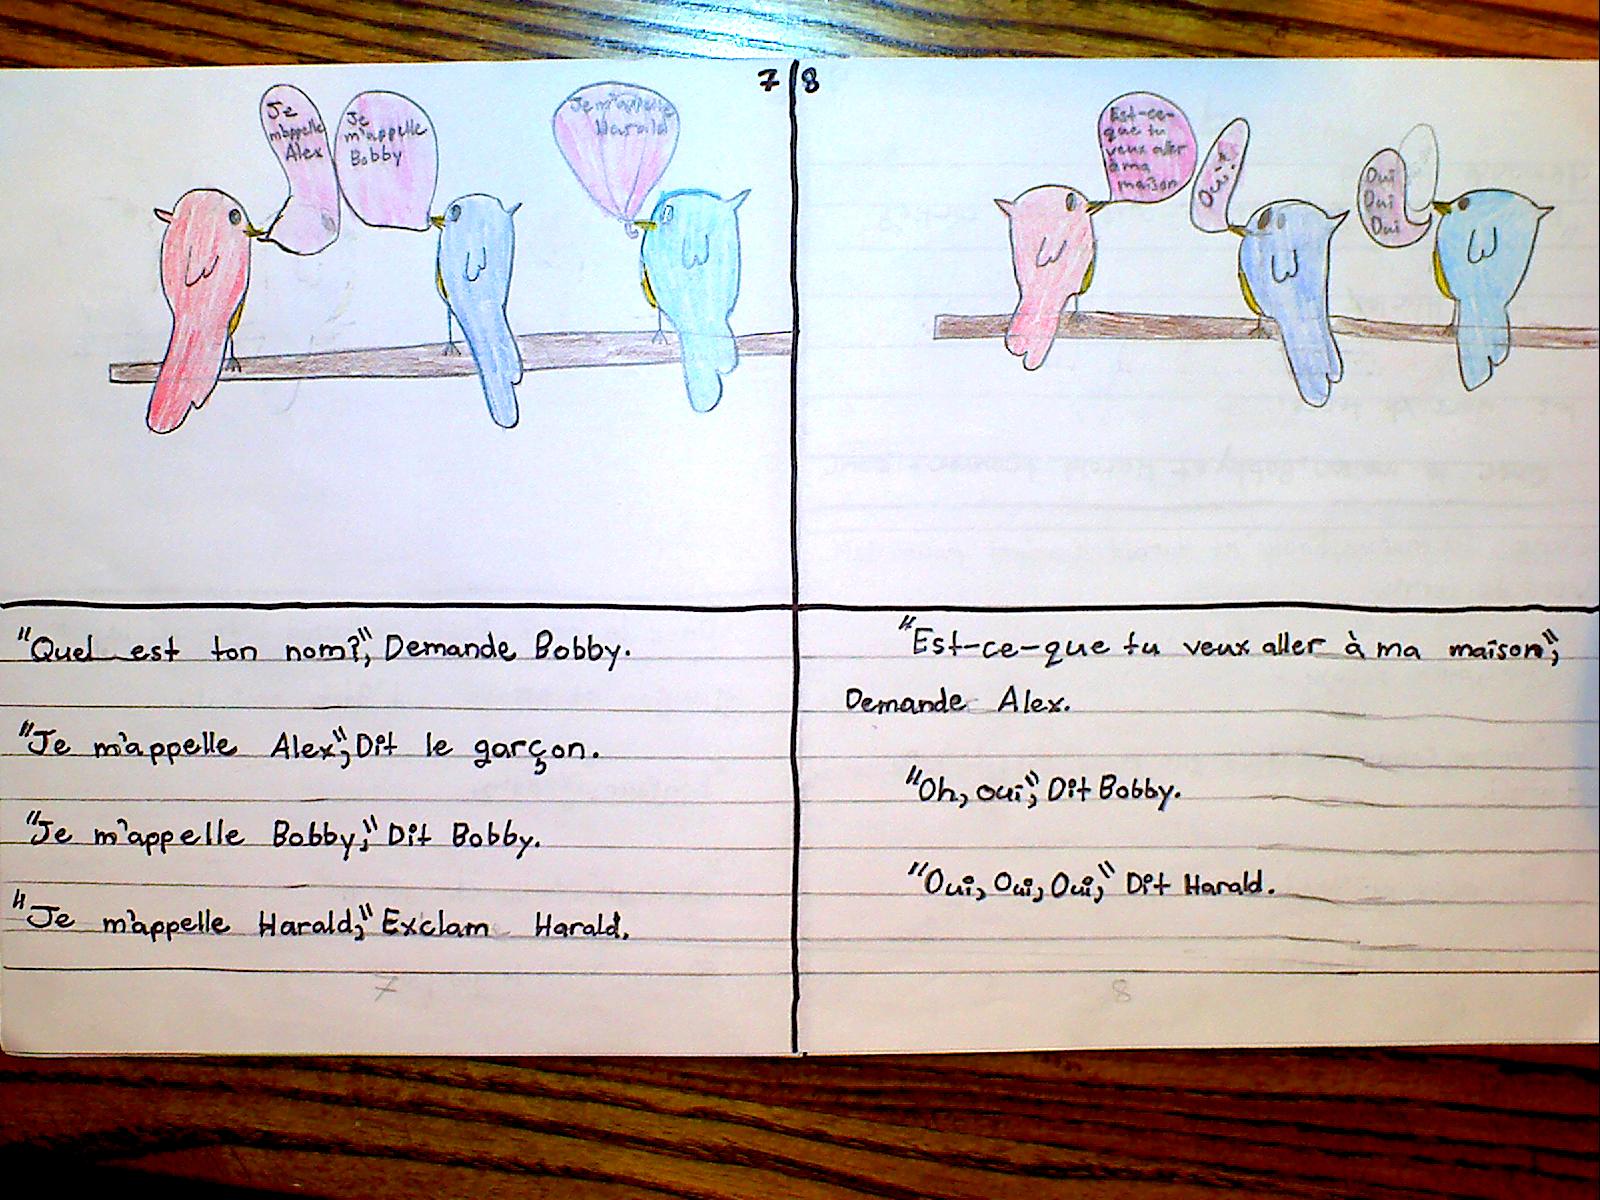 7
Je
m'appelle
Alex
Je
m'appelle
Bobby
Je m'appelle
Harald
"Quel est ton nom?," Demande Bobby.
"Je m'appelle Alex," Dit le garçon.
"Je m'appelle Bobby," Dit Bobby.
"Je m'appelle Harald," Exclam Harald.
7
8
Est-ce-
que tu
veux aller
à ma
maison
Oui
Oui
Oui
"Est-ce-que tu veux aller à ma maison",
Demande Alex.
"Oh, oui", Dit Bobby.
"Oui, Oui, Oui," Dit Harald.
8